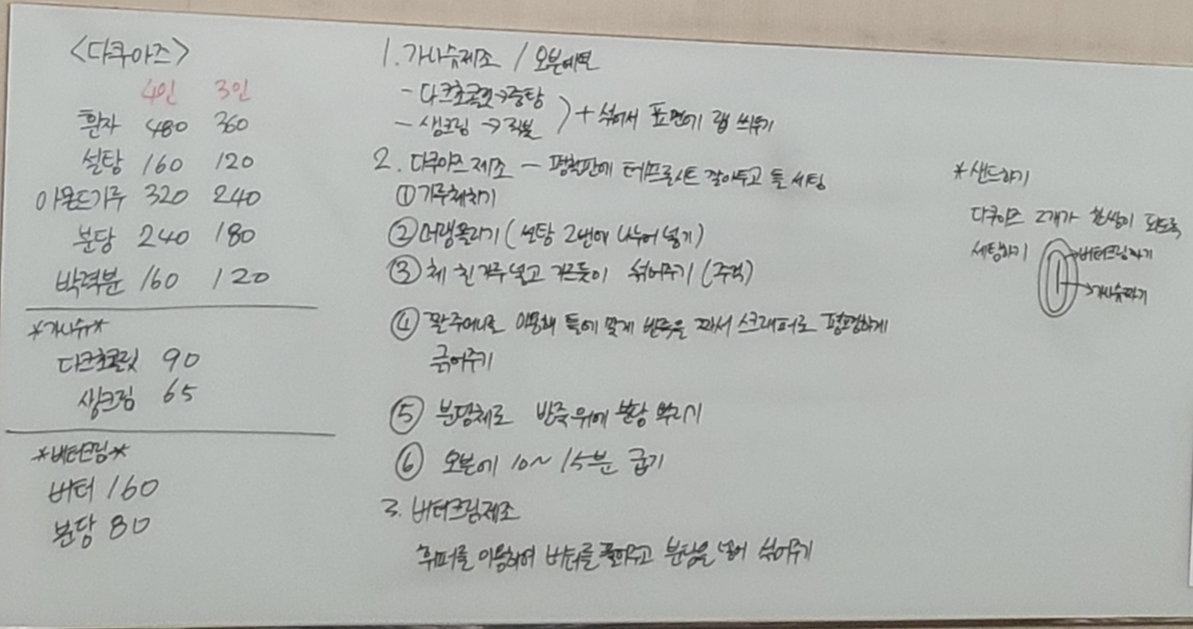 <다쿠아즈>
4인 3인
흰자 480 360
설탕 160 120
아몬드가루 320 240
분당 240 180
박력분 160 120
*가나슈*
다크초콜릿 90
생크림 65
*버터크림*
버터 160
분당 80
1. 가나슈제조 / 오븐예열
- 다크초콜릿→중탕
- 생크림 → 직불
+ 섞어서 표면에 랩 씌우기
2. 다쿠아즈 제조 - 평철판에 테프론시트 깔아두고 틀 세팅
① 가루체치기
② 머랭올리기 (설탕 2번에 나누어 넣기)
③ 체 친 가루 넣고 가르듯이 섞어주기 (주걱)
④ 짤주머니로 이용해 틀에 맞게 반죽을 짜서 스크래퍼로 평평하게
긁어주기
⑤ 분당체로 반죽위에 분당 뿌리기
⑥ 오븐에 10~15분 굽기
3. 버터크림제조
휘퍼를 이용하여 버터를 풀어주고 분당을 넣어 섞어주기
*샌드하기
다쿠아즈 2개가 한쌍이 되도록
세팅하기
→버터크림짜기
→가나슈짜기